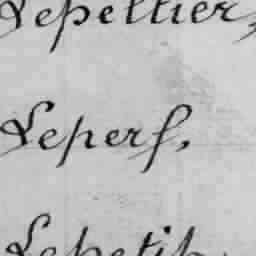 Lepeltier,
Leperf,
Lepetit,